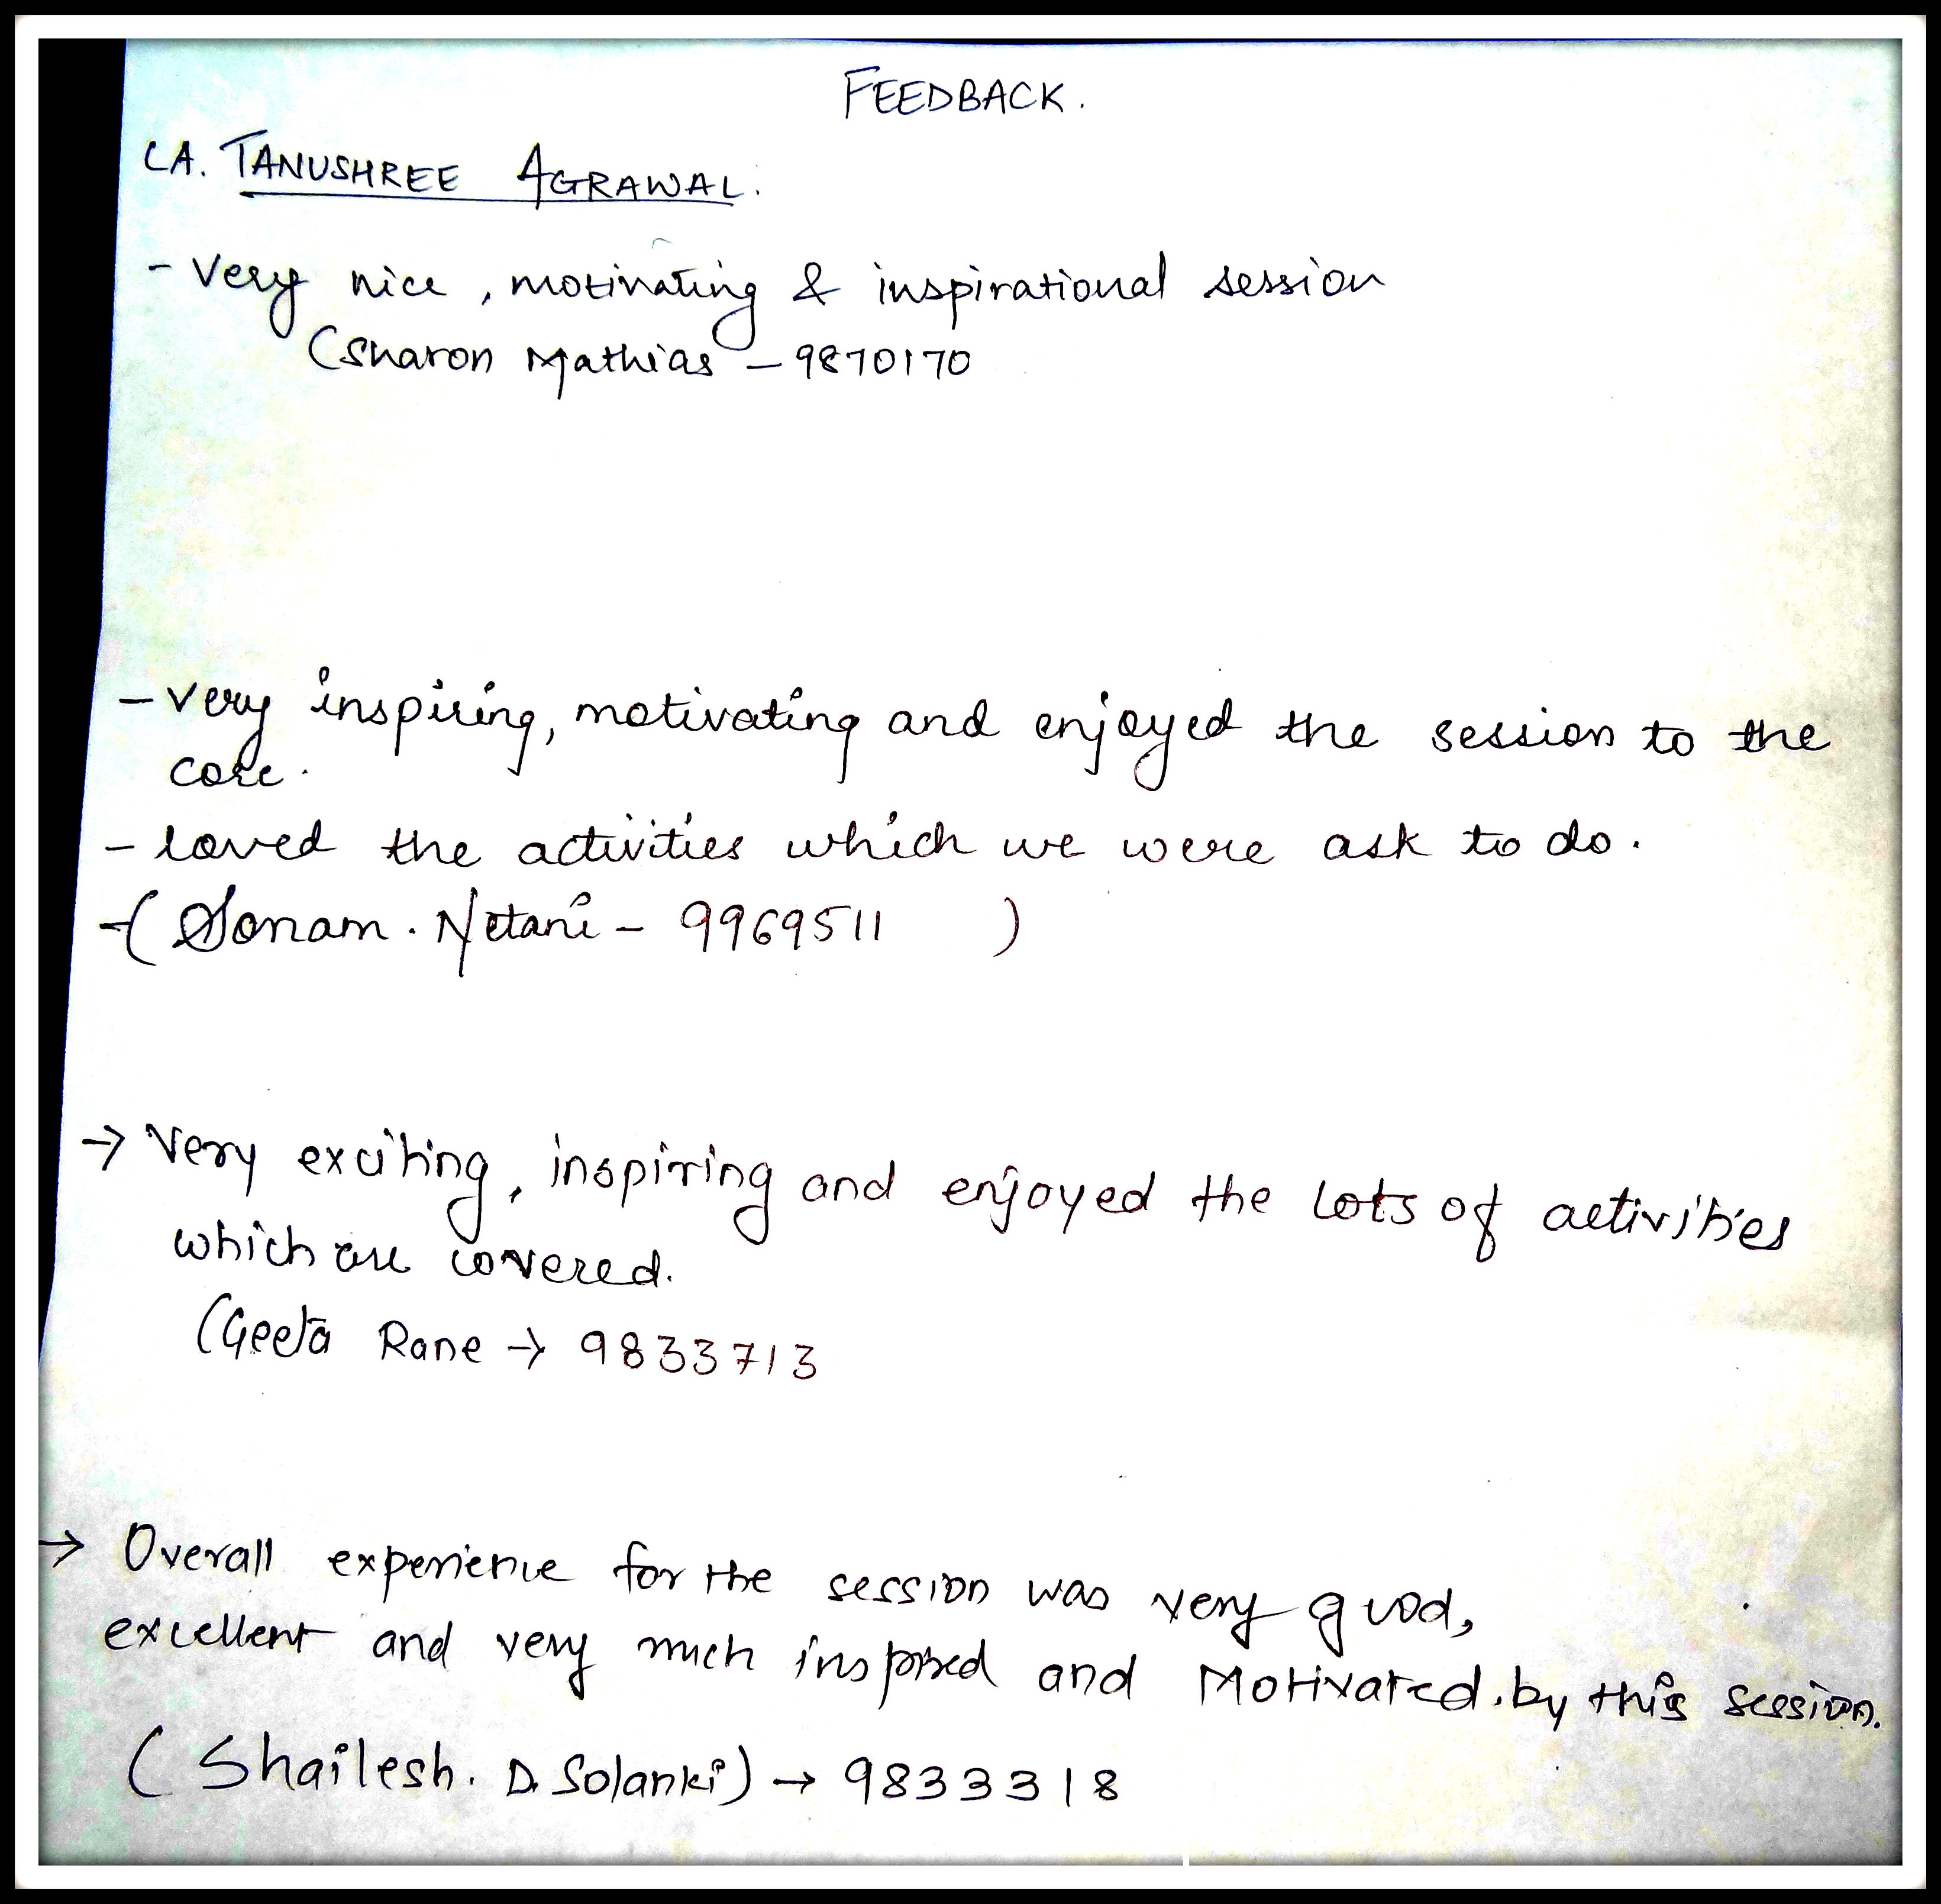 FEEDBACK.
CA. TANUSHREE AGRAWAL.
- Very nice, motivating & inspirational session
(Sharon Mathias - 9870170
- very inspiring, motivating and enjoyed the session to the
core.
- loved the activities which we were ask to do.
-( Sonam. Netani - 9969511 )
→ Very exciting, inspiring and enjoyed the lots of activities
which are covered.
(Geeta Rane → 9833713
→ Overall experience for the session was very good,
excellent and very much inspired and Motivated. by this session.
( Shailesh. D. Solanki) → 9833318